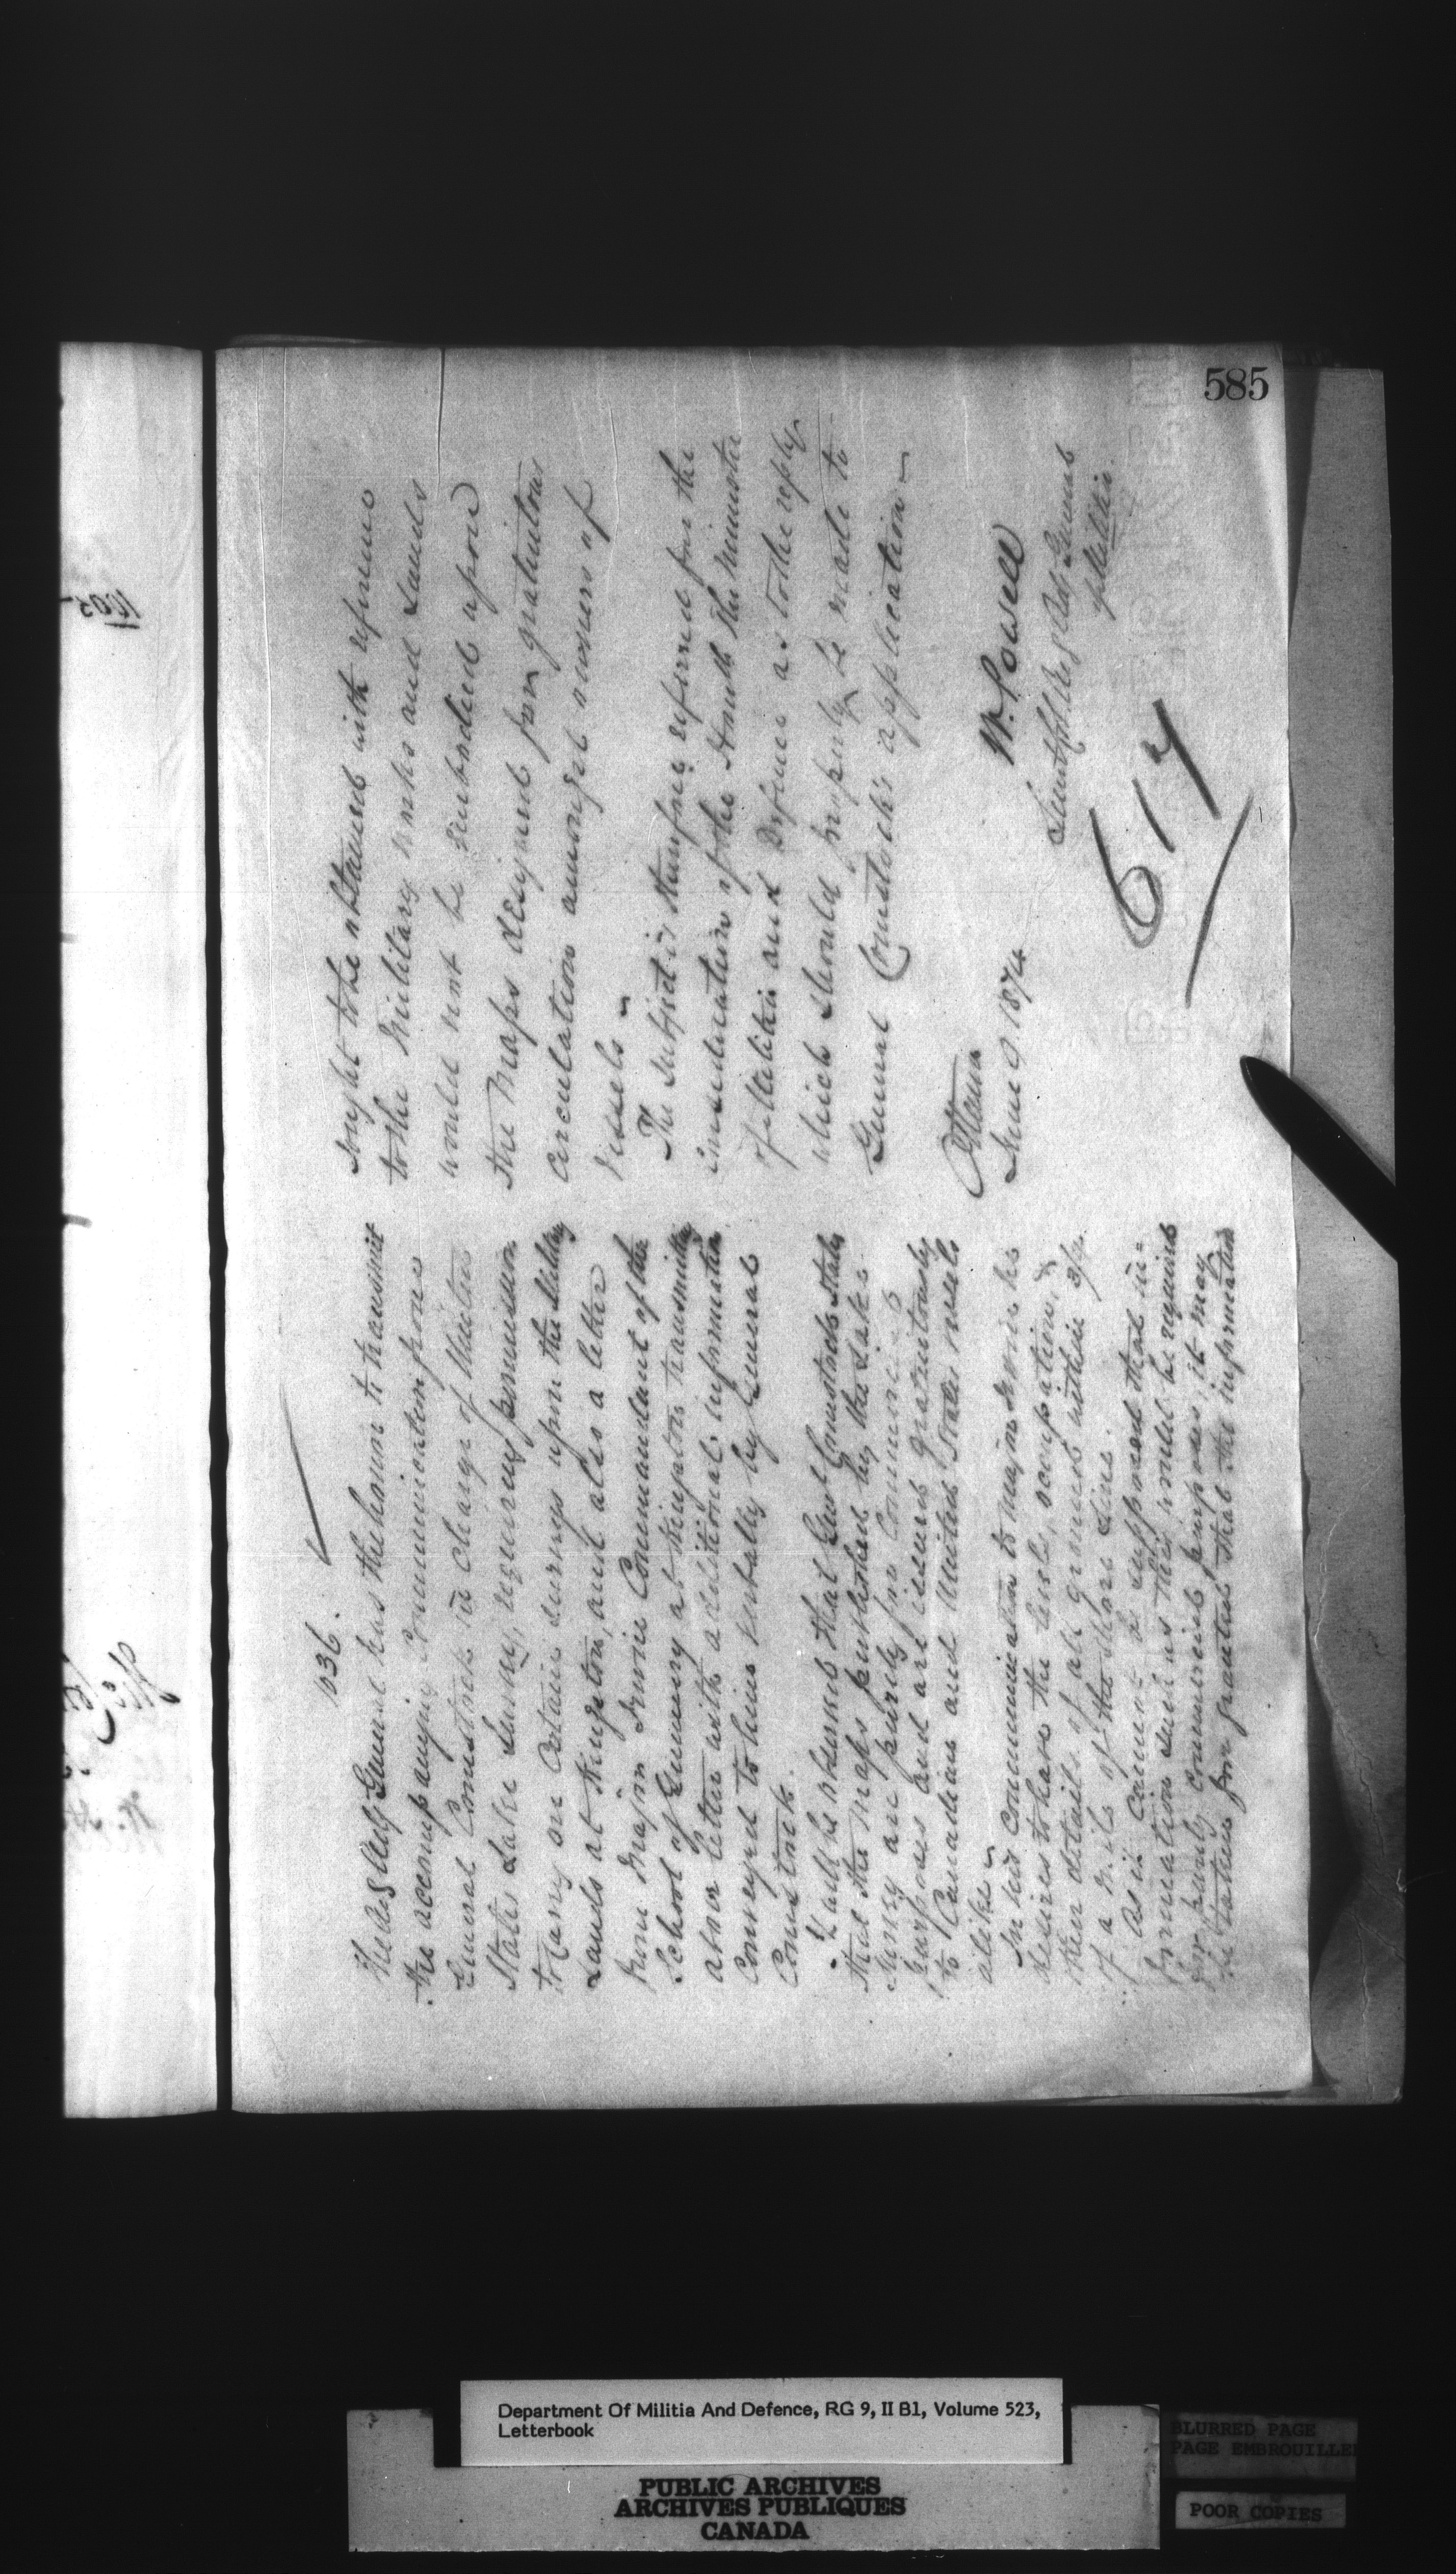 585
1036.
The Adjt General has the honor to transmit
the accompanying Communication from
General Comstock in Charge of United
States Lake Survey, requiring permission
to Carry on Certain surveys upon the Military
Lands at Kingston, and also a letter
from Major Irwin Commandant of the
School of Gunnery at Kingston transmitting
above letter with additional information
Conveyed to him verbally by General
Comstock.
It will be observed that Genl Comstock states
that the maps published by the Lake
Survey are purely for Commercial
purposes and are issued gratuitously
to Canadian and United States vessels
alike ~
In his communication to Major Irwin he
desires to have the
then details of all ground within 3/4
of a mile of the shore Line.
As it Cannot be supposed that in-
formation such as this would be required
for purely Commercial purposes, it may
be taken for granted that the information
sought to be obtained with reference
to the Military works and Lands
would not be embodied upon
the Maps designed for gratuitous
Circulation amongst owners of
vessels ~
The subject is therefore referred for the
consideration of the Honble the Minister
of Militia and Defence as to the reply
which should properly be made to
General Comstock's application ~
Ottawa
June 9. 1874
W. Powell
Adjt General
of Militia.
617
Department Of Militia And Defence, RG 9, II B1, Volume 523,
Letterbook
PUBLIC ARCHIVES
ARCHIVES PUBLIQUES
CANADA
BLURRED PAGE
PAGE EMBROUILLEE
POOR COPIES